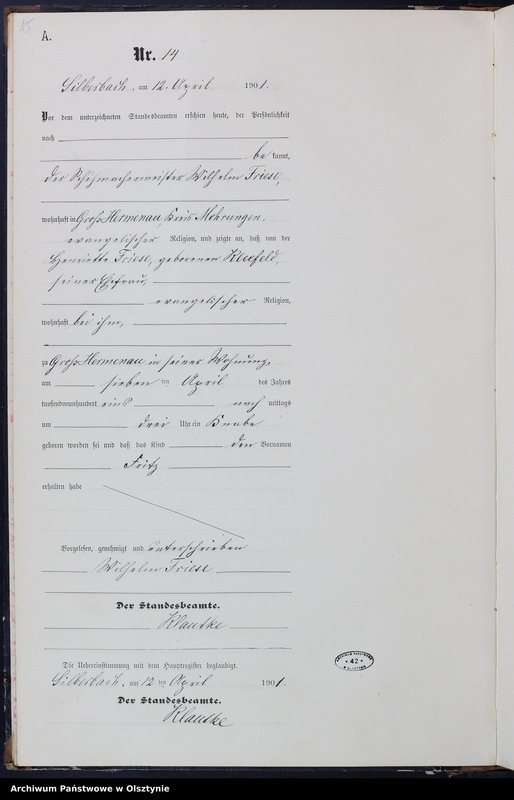 15
A.
Nr. 14
Silberbach, am 12. April 1901.
Vor dem unterzeichneten Standesbeamten erschien heute, der Persönlichkeit
nach
be kannt,
der Schuhmachermeister Wilhelm Friese,
wohnhaft in Groß Hermenau, Kreis Mohrungen,
evangelischer Religion, und zeigte an, daß von der
Henriette Friese, geborenen Kleefeld,
seiner Ehefrau,
evangelischer Religion,
wohnhaft bei ihm,
zu Groß Hermenau in seiner Wohnung
am sieben ten April des Jahres
tausendneunhundert eins nach mittags
um drei Uhr ein Knabe
geboren worden sei und daß das Kind den Vornamen
Fritz
erhalten habe
Vorgelesen, genehmigt und unterschrieben
Wilhelm Friese
Der Standesbeamte.
Klautke
Die Uebereinstimmung mit dem Hauptregister beglaubigt.
Silberbach, am 12 ten April 1901.
Der Standesbeamte.
Klautke
42
Archiwum Państwowe w Olsztynie